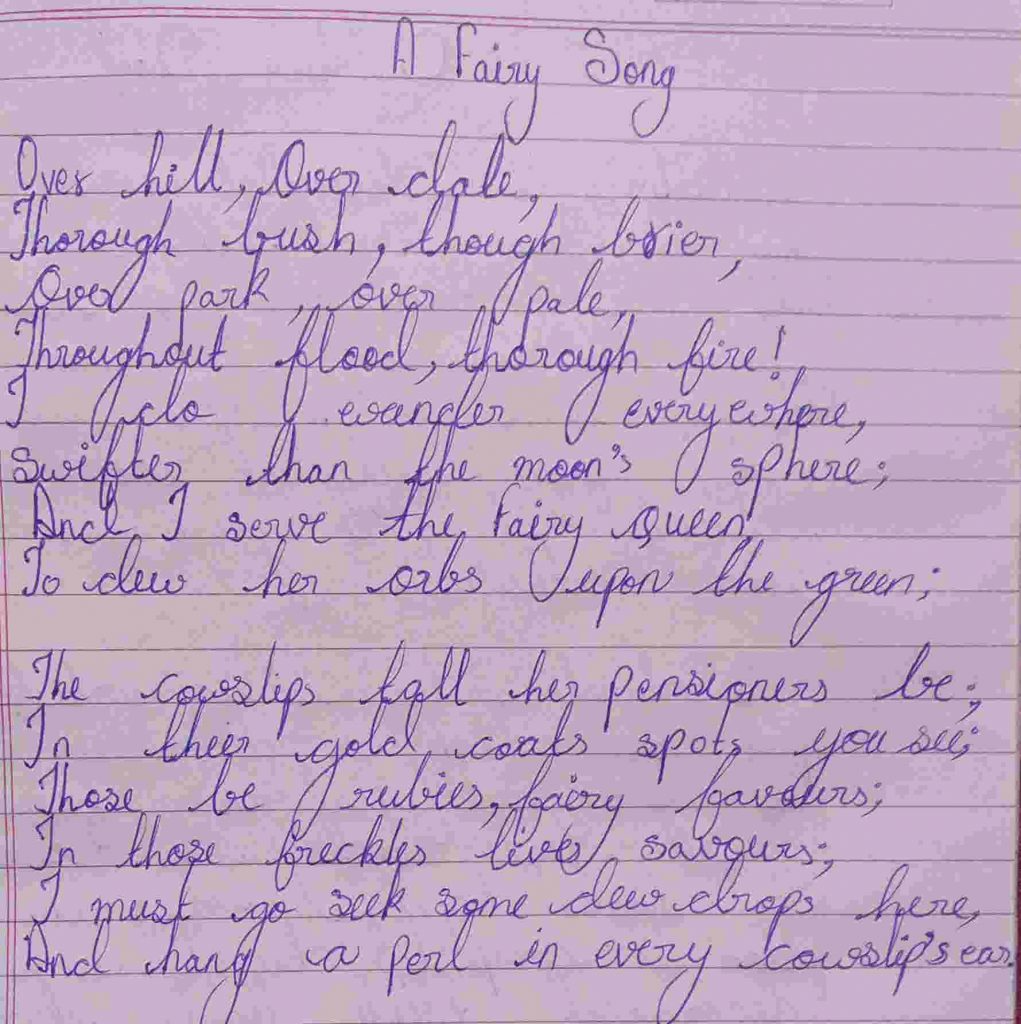 A Fairy Song
Over hill, Over dale,
Thorough bush, though brier,
Over park, over pale,
Throughout flood, thorough fire!
I do wander everywhere,
swifter than the moon's sphere;
And I serve the Fairy Queen,
To dew her orbs upon the green;
The cowslips tall her pensioners be;
In their gold coats spots you see;
Those be rubies, fairy favours;
In those freckles lives savours;
I must go seek some dew drops here,
And hang a perl in every cowslip's ear.